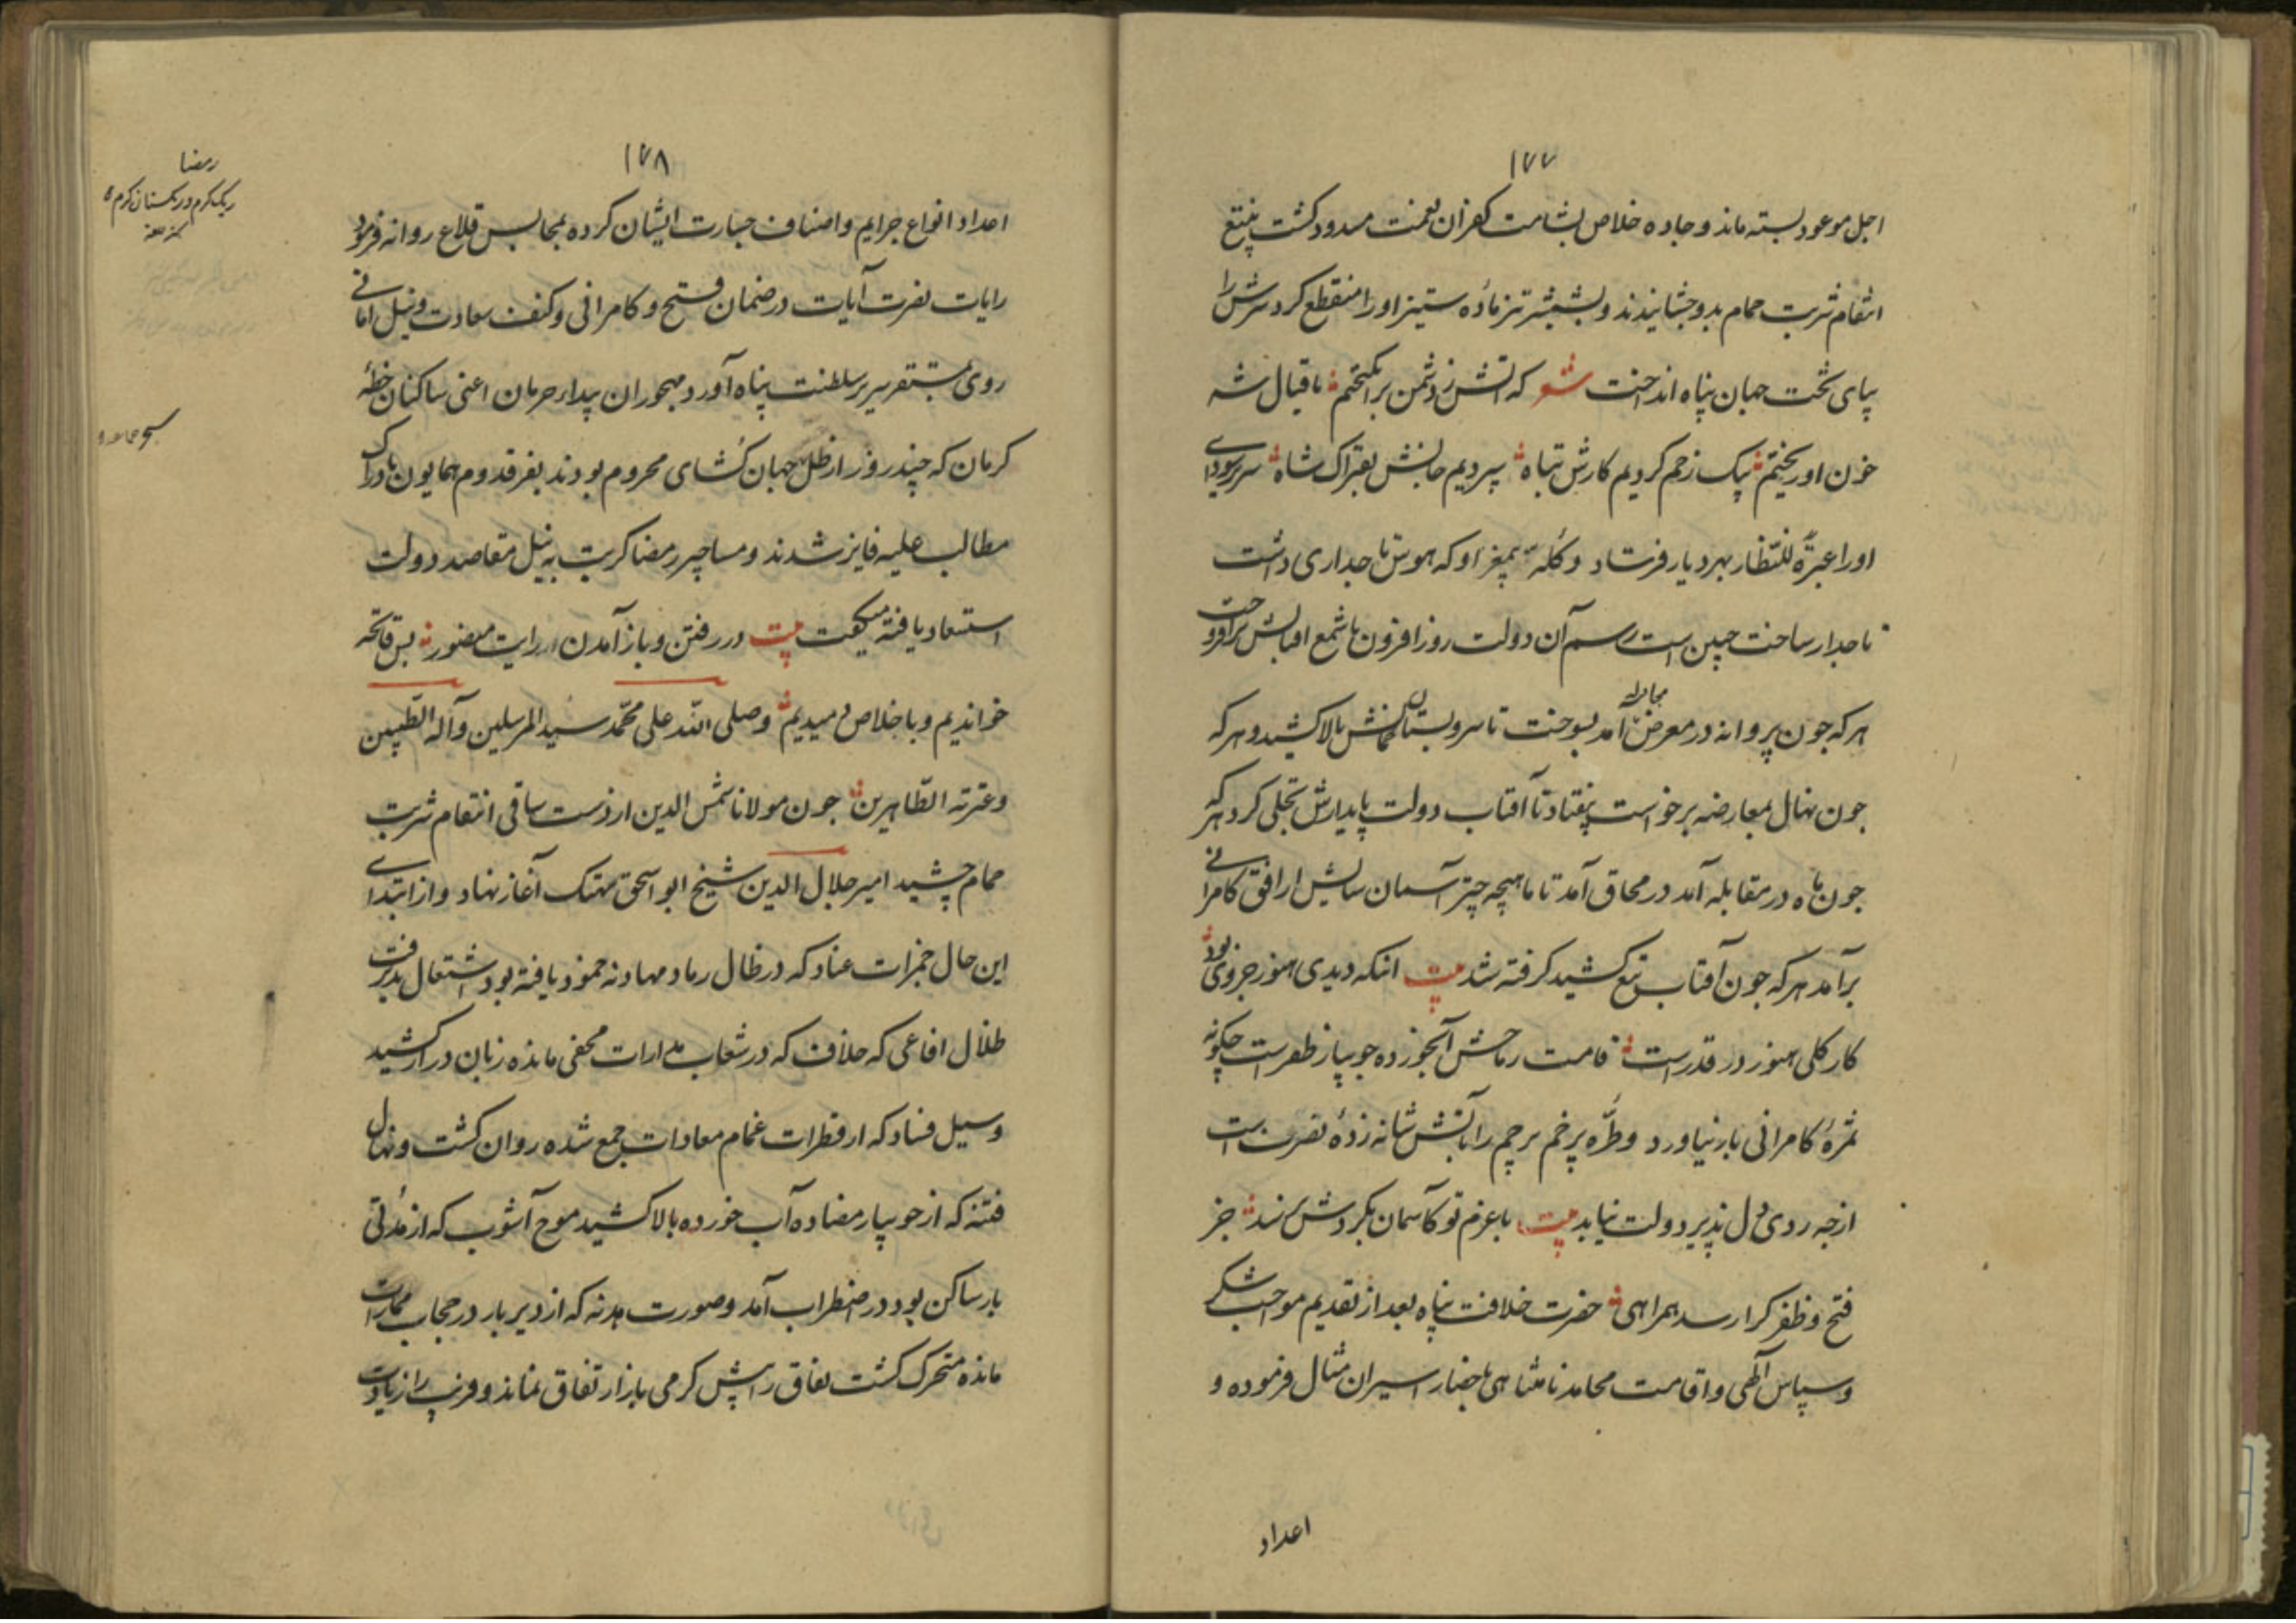 ۱۷۷
اجل موعود بسته ماند و جاده خلاص بشامت کفران نعمت مسدود کشت بتیغ
انتقام شربت حمام بدو چشانیدند و بشمشیر تیز مادّه ستیز او را منقطع کرد سرش را
بپای تخت جهان پناه انداخت شعر که آتش ز دشمن برانکیختم باقبال شه
خون او ریختم بیک زخم کردیم کارش تباه سپردیم جانش بفتراک شاه سر پرسودای
او را عبرةً للنظار بهر دیار فرستاد و کله بیمغز او که هوس تاجداری داشت
تاجدار ساخت چنین است رسم آن دولت روز افزون تا شمع اقبالش برافروخت
هر که چون پروانه در معرض مجادله آمد بسوخت تا سرو بستان بالا کشید و هر که
چون نهال بمعارضه برخواست بیفتاد تا آفتاب دولت پایدارش تجلی کرد هر که
چون ماه در مقابله آمد در محاق آمد تا ماهیچه چتر آسمان سایش از افق کامرانی
برآمد هر که چون آفتاب تیغ کشید کرفته شد بیت آنکه دیدی هنوز جزوی بود
کار کلی هنوز در قدر است قامت رماحش آبخورده جویبار ظفرست چکونه
ثمرهٔ کامرانی بار نیاورد و طرّه پرخم پرچم رایاتش شانه زدهٔ نصرت است
از چه روی دل پذیر دولت نیاید بیت با عزم تو کآسمان بکردش نرسد جز
فتح و ظفر کرا رسد همراهی حضرت خلافت پناه بعد از تقدیم مواجب شکر
و سپاس آلهی و اقامت محامد نامتناهی باحضار اسیران مثال فرموده و
اعداد
۱۷۸
اعداد انواع جرایم و اصناف جسارت ایشان کرده بمحابس قلاع روانه فرمود
رایات نصرت آیات در ضمان فتح و کامرانی و کنف سعادت و نیل امانی
روی بمستقر سریر سلطنت پناه آورد و مهجوران بیدار حرمان اعنی ساکنان خطهٔ
کرمان که چند روز از ظل جهان کشای محروم بودند بفر قدوم همایون بادراک
مطالب علیه فایز شدند و مساچیر رمضا کربت به نیل مقاصد دولت
استسعاد یافته میکفت بیت در رفتن و باز آمدن رایت منصور بس فاتحه
خواندیم و باخلاص دمیدیم وصلی الله علی محمّد سید المرسلین وآله الطّیبین
وعترته الطّاهرین چون مولانا شمس الدین از دست ساقی انتقام شربت
حمام چشید امیر جلال الدین شیخ ابو اسحق تهتک آغاز نهاد و از ابتدای
این حال جمرات عناد که در ظلال رماد مهادنه خمود یافته بود اشتعال پذیرفت
ظلال افاعی که خلاف که در شعاب مدارات مخفی مانده زبان دراز کشید
و سیل فساد که از قطرات غمام معادات جمع شده روان کشت و نهال
فتنه که از جویبار مضاده آب خورده بالا کشید موج آشوب که از مُدتی
باز ساکن بود در اضطراب آمد و صورت هدنه که از دیر باز در حجاب ممارات
مانده متحرک کشت نفاق را بیش کرمی بازار تفاق نماند و فریب را زیادت
رمضا
ریک کرم در یکستان کرم